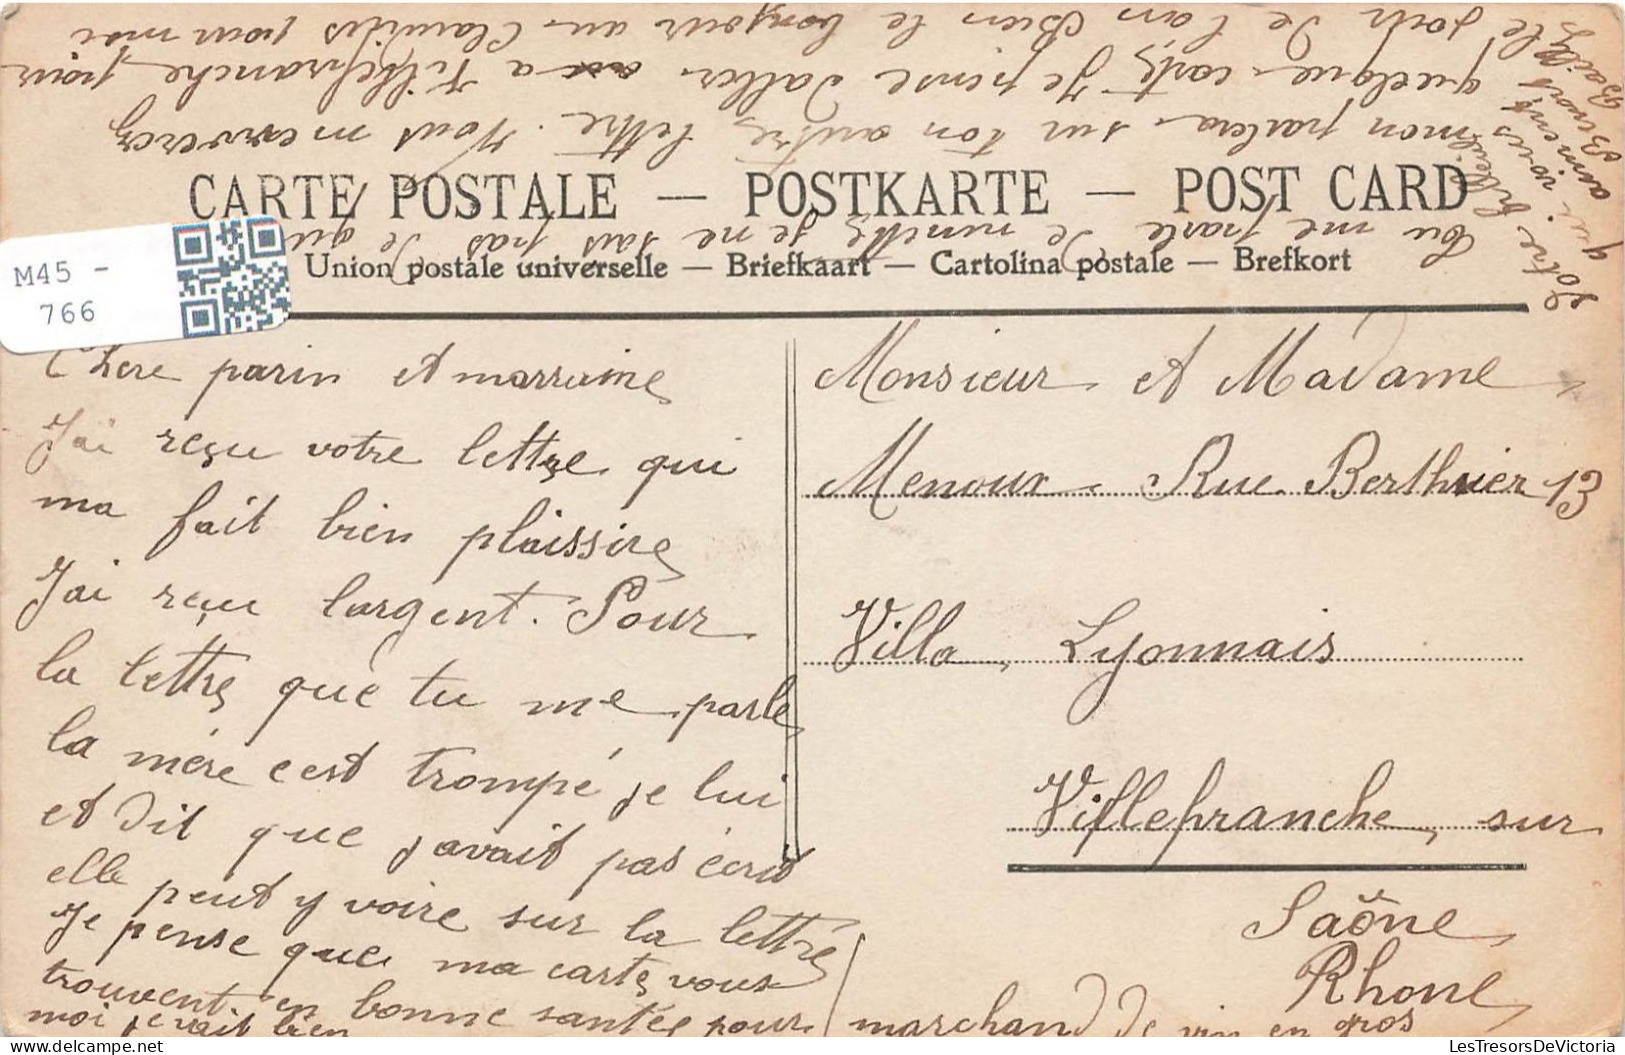 CARTE POSTALE — POSTKARTE — POST CARD
Union postale universelle — Briefkaart — Cartolina postale — Brefkort
M45 -
766
Chere parin et marraine
J'ai reçu votre lettre qui
ma fait bien plaissire
J'ai reçu largent. Pour
la lettre que tu me parle
la mére cest trompé je lui
et dit que javait pas écrit
elle peut y voire sur la lettre
Je pense que ma carte vous
trouvent en bonne santée pour
moi je vait bien
Monsieur et Madame
Menoux Rue Berthier 13
Villa Lyonnais
Villefranche sur
Saône
Rhone
marchand de vin en gros
tu me parle de ninette je ne sais pas de qui
mon parlera sur ton autre lettre. Vous menverez
quelque carte Je pense daller a Villefranche pour
le jour de lan Bien le bonjour au Claudius pour moi
Votre filleul
qui vous
aiment
Bons
Baisers
LesTresorsDeVictoria